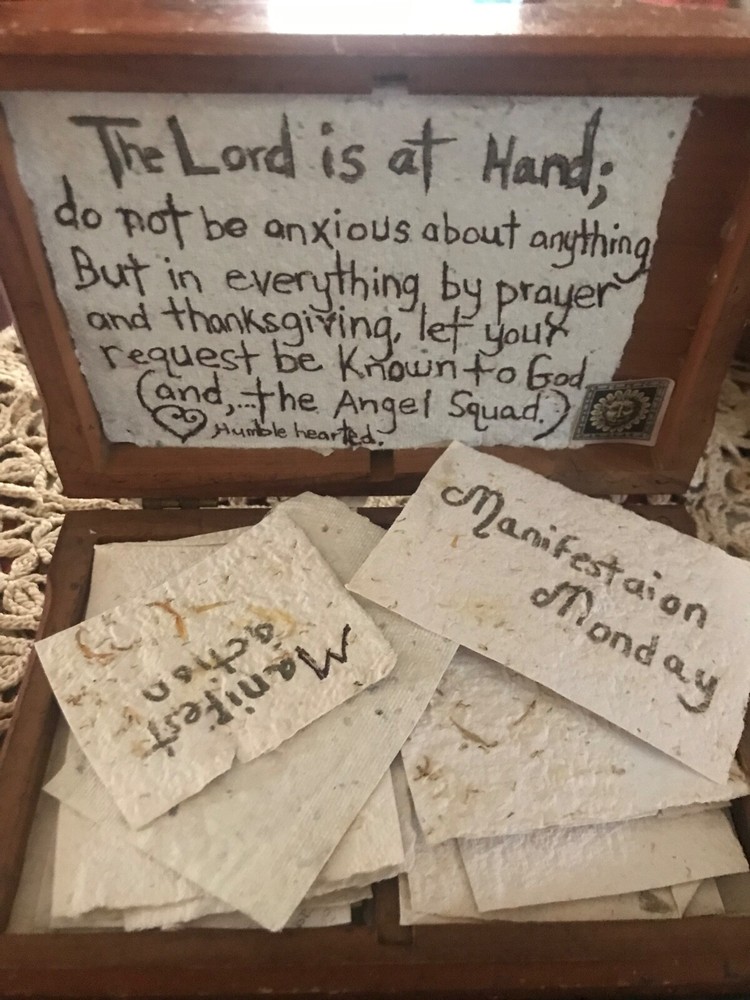 The Lord is at Hand;
do not be anxious about anything
But in everything by prayer
and thanksgiving, let your
request be Known to God
(and,...the Angel Squad.)
Humble hearted.
Manifestaion
Monday
Manifest
action